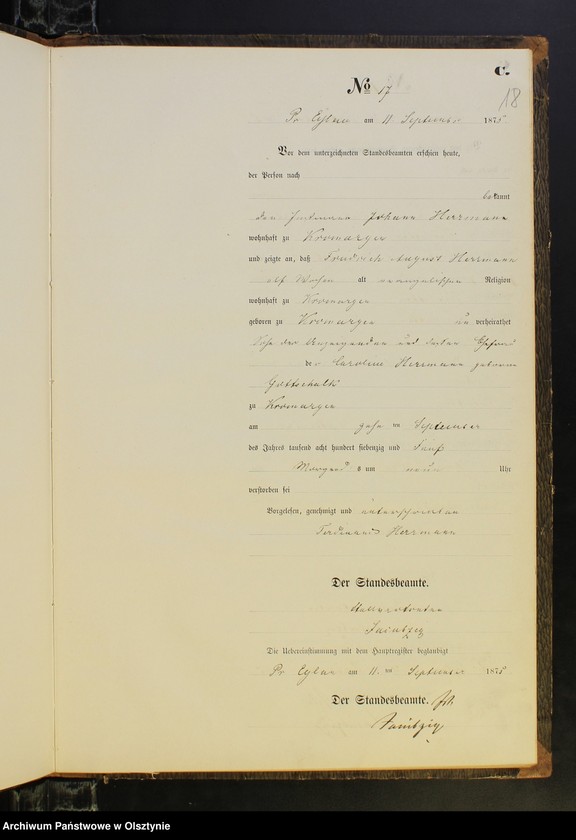 C.
No 17
18
Pr Eylau am 11. September 1875
Vor dem unterzeichneten Standesbeamten erschien heute,
der Person nach
bekannt
den Johann Herrmann
wohnhaft zu Kromargen
und zeigte an, daß Friedrich August Herrmann
elf Wochen alt evangelischen Religion
wohnhaft zu Kromargen
geboren zu Kromargen un verheirathet
Sohn des Angezeigenden und dessen Ehefrau
der Caroline Herrmann geborene
Gottschalk
zu Kromargen
am zehn ten September
des Jahres tausend acht hundert siebenzig und fünf
Morgens um neun Uhr
verstorben sei
Vorgelesen, genehmigt und unterschrieben
Ferdinand Herrmann
Der Standesbeamte.
Die Uebereinstimmung mit dem Hauptregister beglaubigt
Pr Eylau am 11. ten September 1875
Der Standesbeamte.
Archiwum Państwowe w Olsztynie